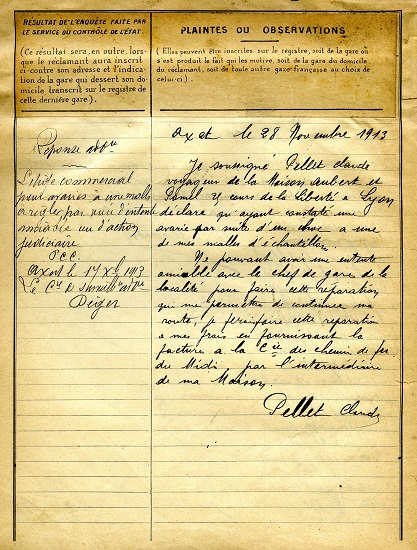 RÉSULTAT DE L'ENQUÊTE FAITE PAR
LE SERVICE DU CONTRÔLE DE L'ÉTAT
(Ce résultat sera, en outre, lors-
que le réclamant aura inscrit
ci-contre son adresse et l'indica-
tion de la gare qui dessert son do-
micile transcrit sur le registre de
cette dernière gare).
Réponse
Litige commercial
pour avaries à une malle
à régler par voie d'entente
amiable ou d'action
judiciaire
P.C.C.
Axat le 17 Xbre 1913
Le Cre de Surveillance
PLAINTES OU OBSERVATIONS
(Elles peuvent être inscrites sur le registre, soit de la gare où
s'est produit le fait qui les motive, soit de la gare du domicile
du réclamant, soit de toute autre gare française au choix de
celui-ci.)
Axat le 28 Novembre 1913
Je soussigné Pellet Claude
voyageur de la Maison Aubert et
cours de la Liberté à Lyon
déclare qu'ayant constaté une
avarie par suite d'un choc a une
de mes malles d'échantillons.
Ne pouvant avoir une entente
amiable avec le chef de gare de la
localité pour faire cette réparation
qui me permettre de continuer ma
route, je ferai faire cette réparation
a mes frais en fournissant la
facture a la Cie des chemin de fer
du Midi par l'intermédiaire
de ma Maison.
Pellet Claude